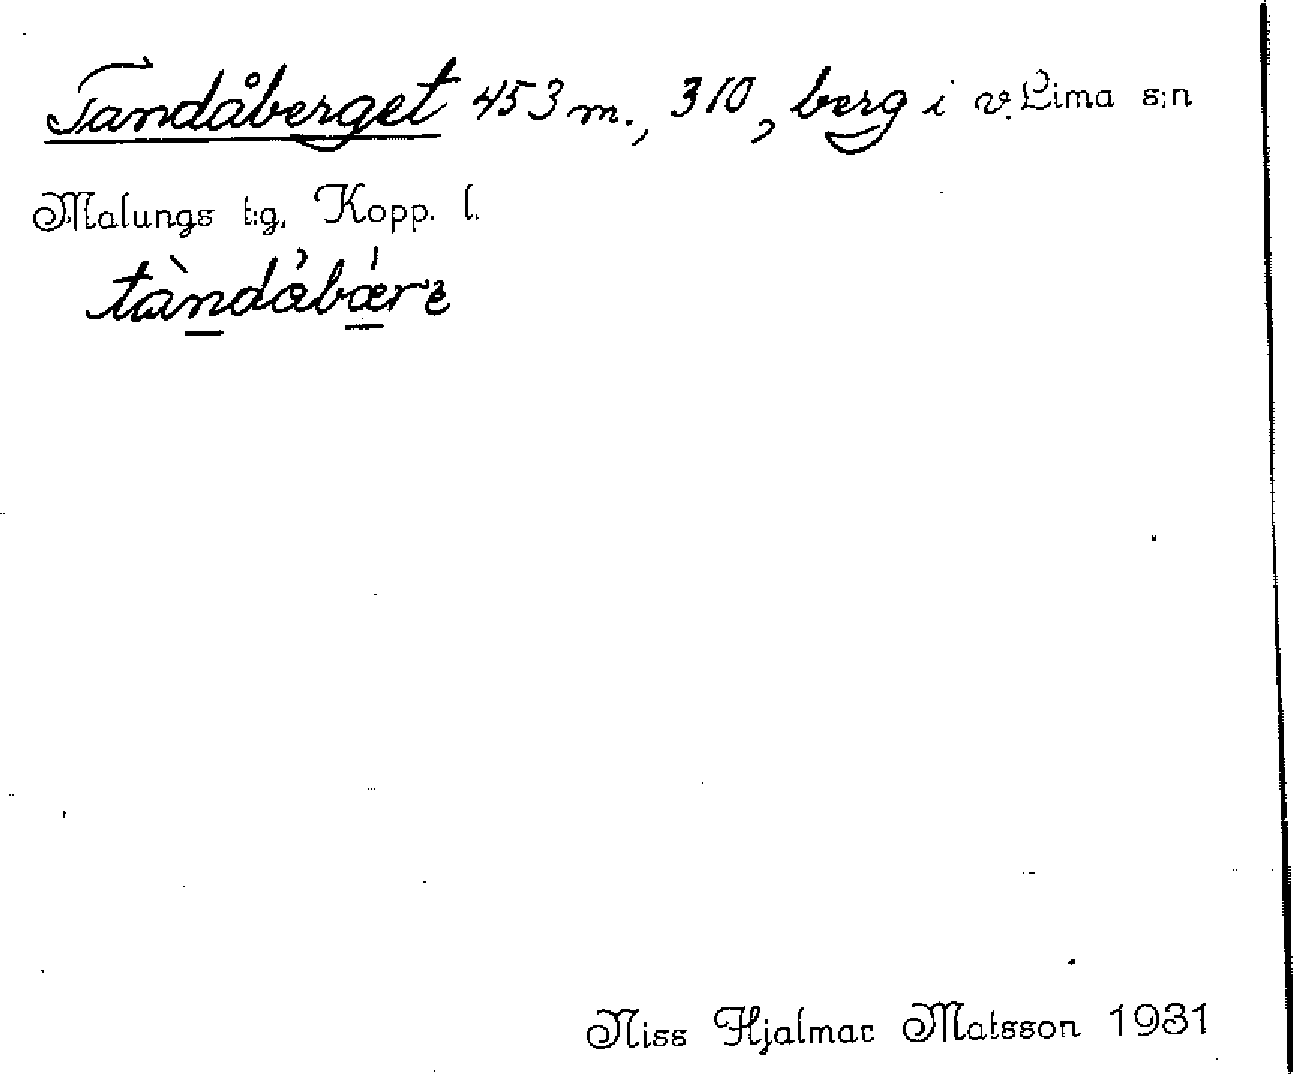 Tandåberget 453 m., 310, berg i v. Lima s:n
Malungs t:g, Kopp. l.
tàndåbærɛ
Niss Hjalmar Matsson 1931